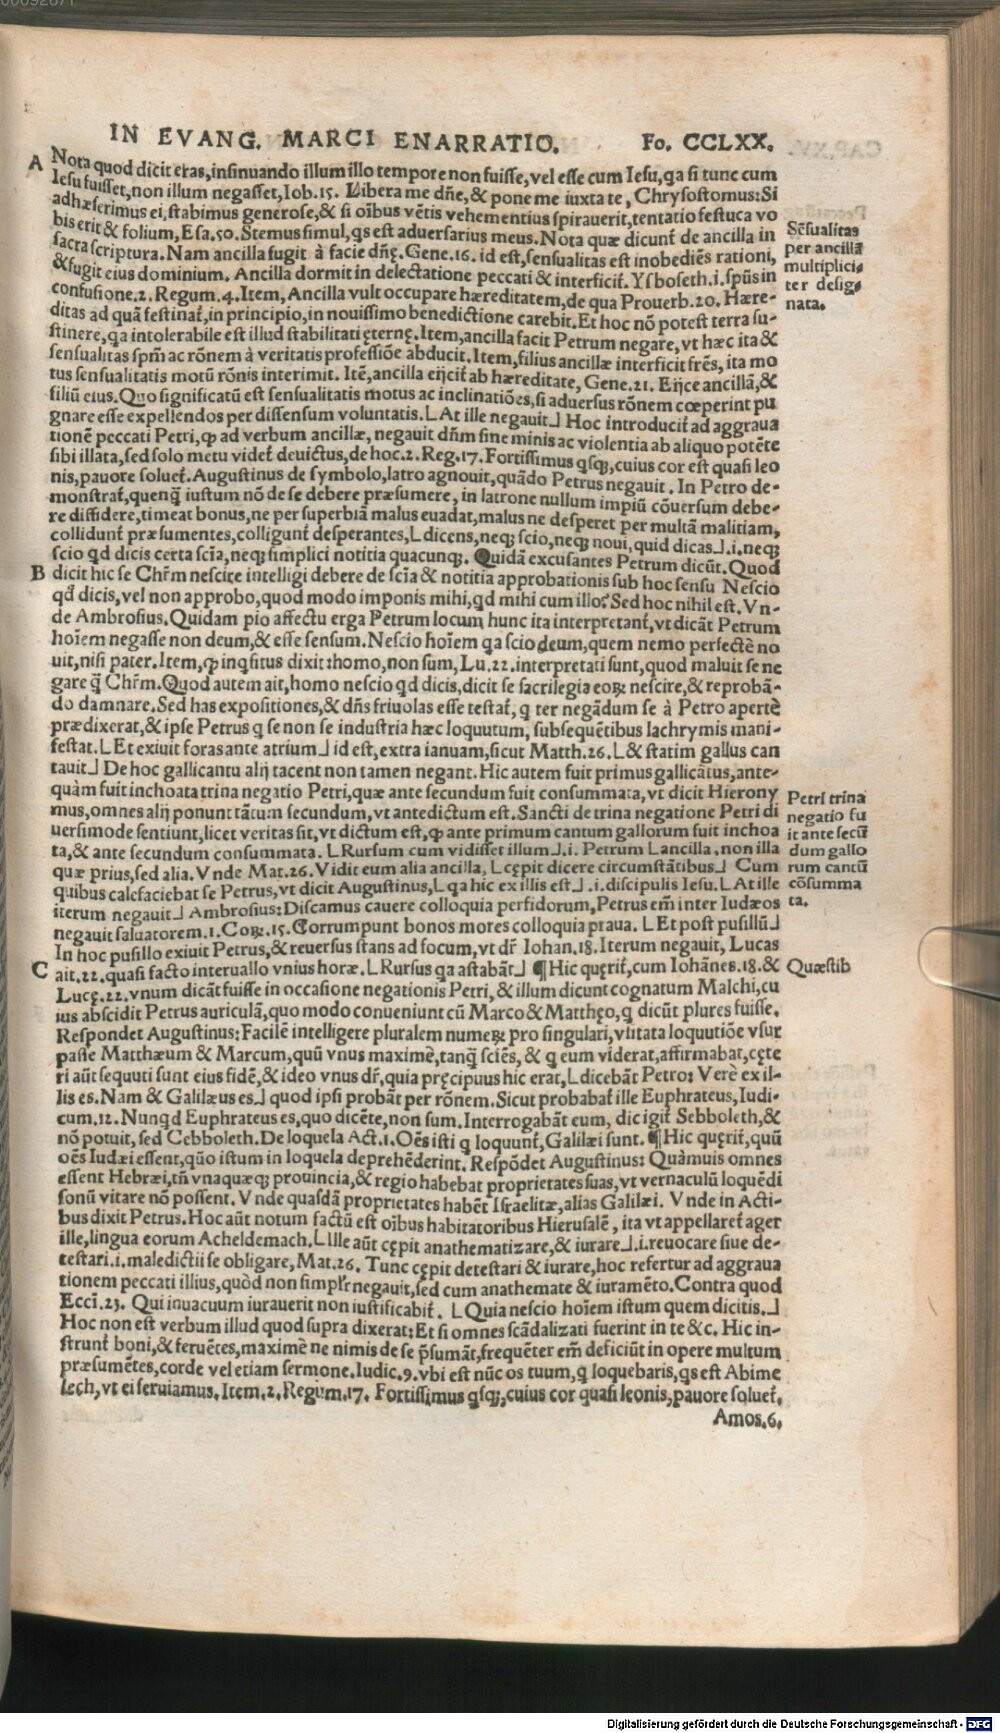 00092871
IN EVANG. MARCI ENARRATIO. Fo. CCLXX.
A Nota quod dicit eras, insinuando illum illo tempore non fuisse, vel esse cum Iesu, qa si tunc cum
Iesu fuisset, non illum negasset, Iob. 15. Libera me dñe, & pone me iuxta te, Chrysostomus: Si
adhæserimus ei, stabimus generose, & si oĩbus vẽtis vehementius spirauerit, tentatio festuca vo
bis erit & folium, Esa. 50. Stemus simul, qs est aduersarius meus. Nota quæ dicunt̃ de ancilla in
sacra scriptura. Nam ancilla fugit à facie dñę. Gene. 16. id est, sensualitas est inobediẽs rationi,
& fugit eius dominium. Ancilla dormit in delectatione peccati & interficit̃. Ysboseth. i. spũs in
confusione. 2. Regum. 4. Item, Ancilla vult occupare hæreditatem, de qua Prouerb. 20. Hære-
ditas ad quã festinat̃, in principio, in nouissimo benedictione carebit. Et hoc nõ potest terra su-
stinere, qa intolerabile est illud stabilitati ęternę. Item, ancilla facit Petrum negare, vt hæc ita &
sensualitas spm̃ ac rõnem à veritatis professiõe abducit. Item, filius ancillæ interficit frẽs, ita mo
tus sensualitatis motũ rõnis interimit. Itẽ, ancilla eijcit̃ ab hæreditate, Gene. 21. Eijce ancillã, &
filiũ eius. Quo significatũ est sensualitatis motus ac inclinatiões, si aduersus rõnem cœperint pu
gnare esse expellendos per dissensum voluntatis. ⌊At ille negauit⌋ Hoc introducit̃ ad aggraua
tionẽ peccati Petri, ꝙ ad verbum ancillæ, negauit dñm sine minis ac violentia ab aliquo potẽte
sibi illata, sed solo metu videt̃ deuictus, de hoc. 2. Reg. 17. Fortissimus qsqȝ, cuius cor est quasi leo
nis, pauore soluet̃. Augustinus de symbolo, latro agnouit, quãdo Petrus negauit. In Petro de-
monstrat̃, quenq̃ iustum nõ de se debere præsumere, in latrone nullum impiũ cõuersum debe-
re diffidere, timeat bonus, ne per superbiã malus euadat, malus ne desperet per multã malitiam,
collidunt̃ præsumentes, colligunt̃ desperantes, ⌊dicens, neqȝ scio, neqȝ noui, quid dicas⌋. i. neqȝ
scio qd dicis certa scĩa, neqȝ simplici notitia quacunqȝ. Quidã excusantes Petrum dicũt. Quod
B dicit hic se Chr̃m nescire intelligi debere de scĩa & notitia approbationis sub hoc sensu Nescio
qd dicis, vel non approbo, quod modo imponis mihi, qd mihi cum illo? Sed hoc nihil est. Vn-
de Ambrosius. Quidam pio affectu erga Petrum locum hunc ita interpretant̃, vt dicãt Petrum
hoĩem negasse non deum, & esse sensum. Nescio hoĩem qa scio deum, quem nemo perfectè no
uit, nisi pater. Item, ꝙ inqsitus dixit: homo, non sum, Lu. 22. interpretati sunt, quod maluit se ne
gare q̃ Chr̃m. Quod autem ait, homo nescio qd dicis, dicit se sacrilegia eoꝝ nescire, & reprobã-
do damnare. Sed has expositiones, & dñs friuolas esse testat̃, q ter negãdum se à Petro apertè
prædixerat, & ipse Petrus q se non se industria hæc loquutum, subsequẽtibus lachrymis mani-
festat. ⌊Et exiuit foras ante atrium⌋ id est, extra ianuam, sicut Matth. 26. ⌊& statim gallus can
tauit⌋ De hoc gallicantu alij tacent non tamen negant. Hic autem fuit primus gallicãtus, ante-
quàm fuit inchoata trina negatio Petri, quæ ante secundum fuit consummata, vt dicit Hierony
mus, omnes alij ponunt tãtum secundum, vt antedictum est. Sancti de trina negatione Petri di
uersimode sentiunt, licet veritas sit, vt dictum est, ꝙ ante primum cantum gallorum fuit inchoa
ta, & ante secundum consummata. ⌊Rursum cum vidisset illum⌋. i. Petrum ⌊ancilla, non illa
quæ prius, sed alia. Vnde Mat. 26. Vidit eum alia ancilla, ⌊cępit dicere circumstãtibus⌋ Cum
quibus calefaciebat se Petrus, vt dicit Augustinus, ⌊qa hic ex illis est⌋. i. discipulis Iesu. ⌊At ille
iterum negauit⌋ Ambrosius: Discamus cauere colloquia perfidorum, Petrus em̃ inter Iudæos
negauit saluatorem. 1. Coꝝ. 15. Corrumpunt bonos mores colloquia praua. ⌊Et post pusillũ⌋
In hoc pusillo exiuit Petrus, & reuersus stans ad focum, vt dr̃ Iohan. 18. Iterum negauit, Lucas
C ait. 22. quasi facto interuallo vnius horæ. ⌊Rursus qa astabãt⌋ ¶Hic quęrit̃, cum Iohãnes. 18. &
Lucę. 22. vnum dicãt fuisse in occasione negationis Petri, & illum dicunt cognatum Malchi, cu
ius abscidit Petrus auriculã, quo modo conueniunt cũ Marco & Matthęo, q dicũt plures fuisse.
Respondet Augustinus: Facilè intelligere pluralem numeꝝ pro singulari, vsitata loquutiõe vsur
passe Matthæum & Marcum, quũ vnus maximè, tanq̃ sciẽs, & q eum viderat, affirmabat, cęte
ri aũt sequuti sunt eius fidẽ, & ideo vnus dr̃, quia pręcipuus hic erat, ⌊dicebãt Petro: Verè ex il-
lis es. Nam & Galilæus es⌋ quod ipsi probãt per rõnem. Sicut probabat̃ ille Euphrateus, Iudi-
cum. 12. Nunqd Euphrateus es, quo dicẽte, non sum. Interrogabãt eum, dic igit̃ Sebboleth, &
nõ potuit, sed Cebboleth. De loquela Act. 1. Oẽs isti q loquunt̃, Galilæi sunt. ¶Hic quęrit̃, quũ
oẽs Iudæi essent, qũo istum in loquela deprehẽderint. Respõdet Augustinus: Quàmuis omnes
essent Hebræi, tñ vnaquæqȝ prouincia, & regio habebat proprietates suas, vt vernaculũ loquẽdi
sonũ vitare nõ possent. Vnde quasdã proprietates habẽt Israelitæ, alias Galilæi. Vnde in Acti-
bus dixit Petrus. Hoc aũt notum factũ est oĩbus habitatoribus Hierusalẽ, ita vt appellaret̃ ager
ille, lingua eorum Acheldemach. ⌊Ille aũt cępit anathematizare, & iurare⌋. i. reuocare siue de-
testari. i. maledictii se obligare, Mat. 26. Tunc cępit detestari & iurare, hoc refertur ad aggraua
tionem peccati illius, quòd non simpłr negauit, sed cum anathemate & iuramẽto. Contra quod
Eccl̃i. 23. Qui inuacuum iurauerit non iustificabit̃. ⌊Quia nescio hoĩem istum quem dicitis.⌋
Hoc non est verbum illud quod supra dixerat: Et si omnes scãdalizati fuerint in te &c. Hic in-
strunt̃ boni, & feruẽtes, maximè ne nimis de se p̃sumãt, frequẽter em̃ deficiũt in opere multum
præsumẽtes, corde vel etiam sermone. Iudic. 9. vbi est nũc os tuum, q̃ loquebaris, qs est Abime
lech, vt ei seruiamus. Item. 2. Regum. 17. Fortissimus qsqȝ, cuius cor quasi leonis, pauore soluet̃.
Amos. 6.
Sẽsualitas
per ancillã
multiplici-
ter desig-
nata.
Petri trina
negatio fu
it ante secũ
dum gallo
rum cantũ
cõsumma
ta.
Quæstio
Digitalisierung gefördert durch die Deutsche Forschungsgemeinschaft - DFG